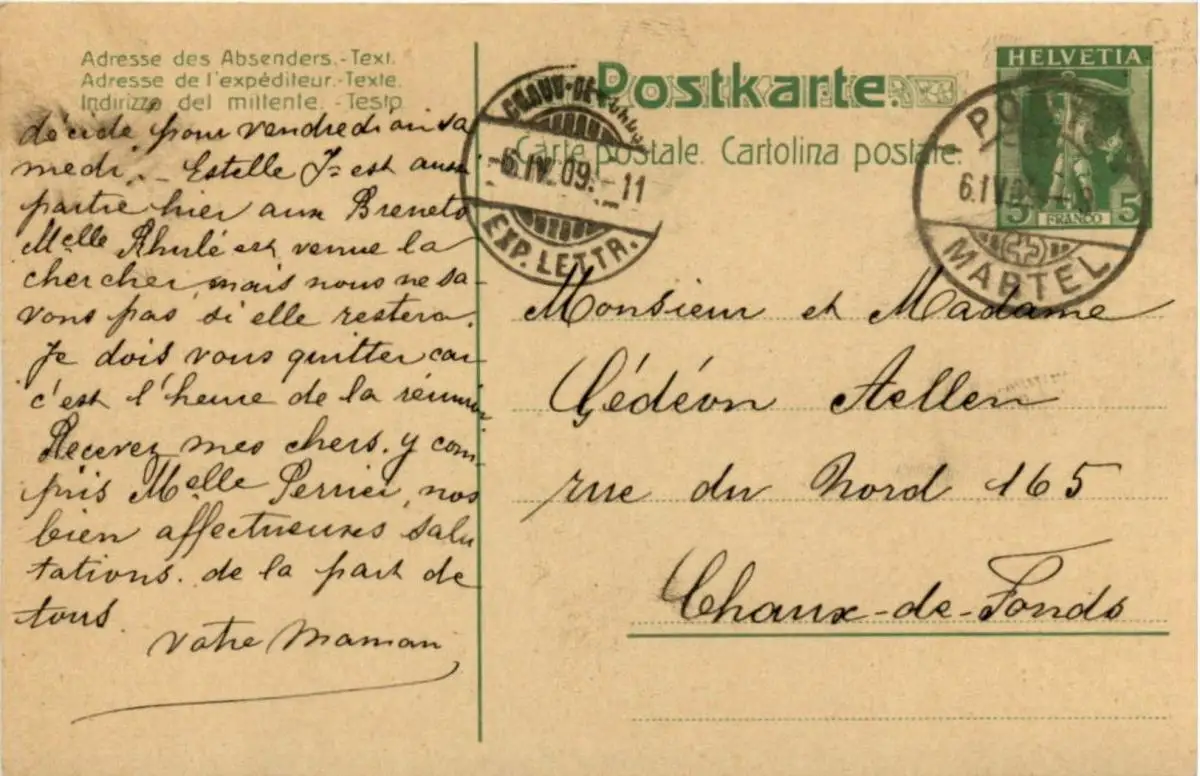 Adresse des Absenders.-Text.
Adresse de l'expéditeur.-Texte.
Indirizzo del mittente.-Testo
décide pour vendredi ou sa
medi. - Estelle J= est aussi
partie hier aux Brenets
Melle Rhulé est venue la
chercher mais nous ne sa-
vons pas si elle restera.
Je dois vous quitter car
c'est l'heure de la réunion.
Recevez mes chers. y com-
pris Melle Perrier, nos
bien affectueuses salu
tations. de la part de
tous.
Votre Maman
CHAUX-DE-
-6.IV.09.-11
EXP. LETTR.
Postkarte.
Carte postale. Cartolina postale.
HELVETIA
5 FRANCO 5
6.IV.
MARTEL
Monsieur et Madame
Gédéon Aellen
rue du Nord 165
Chaux-de-Fonds